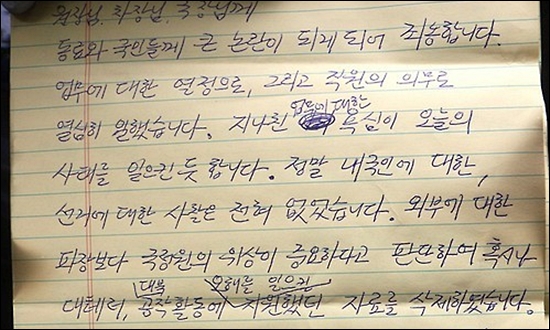 원장님, 차장님, 국장님께
동료와 국민들께 큰 논란이 되게 되어 죄송합니다.
업무에 대한 열정으로, 그리고 직원의 의무로
열심히 일했습니다. 지나친 업무에 대한 욕심이 오늘의
사태를 일으킨 듯 합니다. 정말 내국인에 대한,
선거에 대한 사찰은 전혀 없었습니다. 외부에 대한
파장보다 국정원의 위상이 중요하다고 판단하여 혹시나
대테러, 대북 공작활동에 오해를 일으킨 지원했던 자료를 삭제하였습니다.